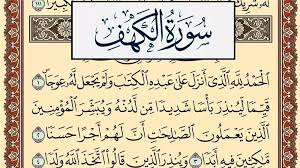 سُورَةُ الْكَهْفِ
ٱلْحَمْدُ لِلَّهِ ٱلَّذِىٓ أَنزَلَ عَلَىٰ عَبْدِهِ ٱلْكِتَٰبَ وَلَمْ يَجْعَل لَّهُۥ عِوَجَا ۜ ١
قَيِّمًا لِّيُنذِرَ بَأْسًا شَدِيدًا مِّن لَّدُنْهُ وَيُبَشِّرَ ٱلْمُؤْمِنِينَ
ٱلَّذِينَ يَعْمَلُونَ ٱلصَّٰلِحَٰتِ أَنَّ لَهُمْ أَجْرًا حَسَنًا ٢
مَّٰكِثِينَ فِيهِ أَبَدًا ٣ وَيُنذِرَ ٱلَّذِينَ قَالُوا۟ ٱتَّخَذَ ٱللَّهُ وَلَدًا ٤